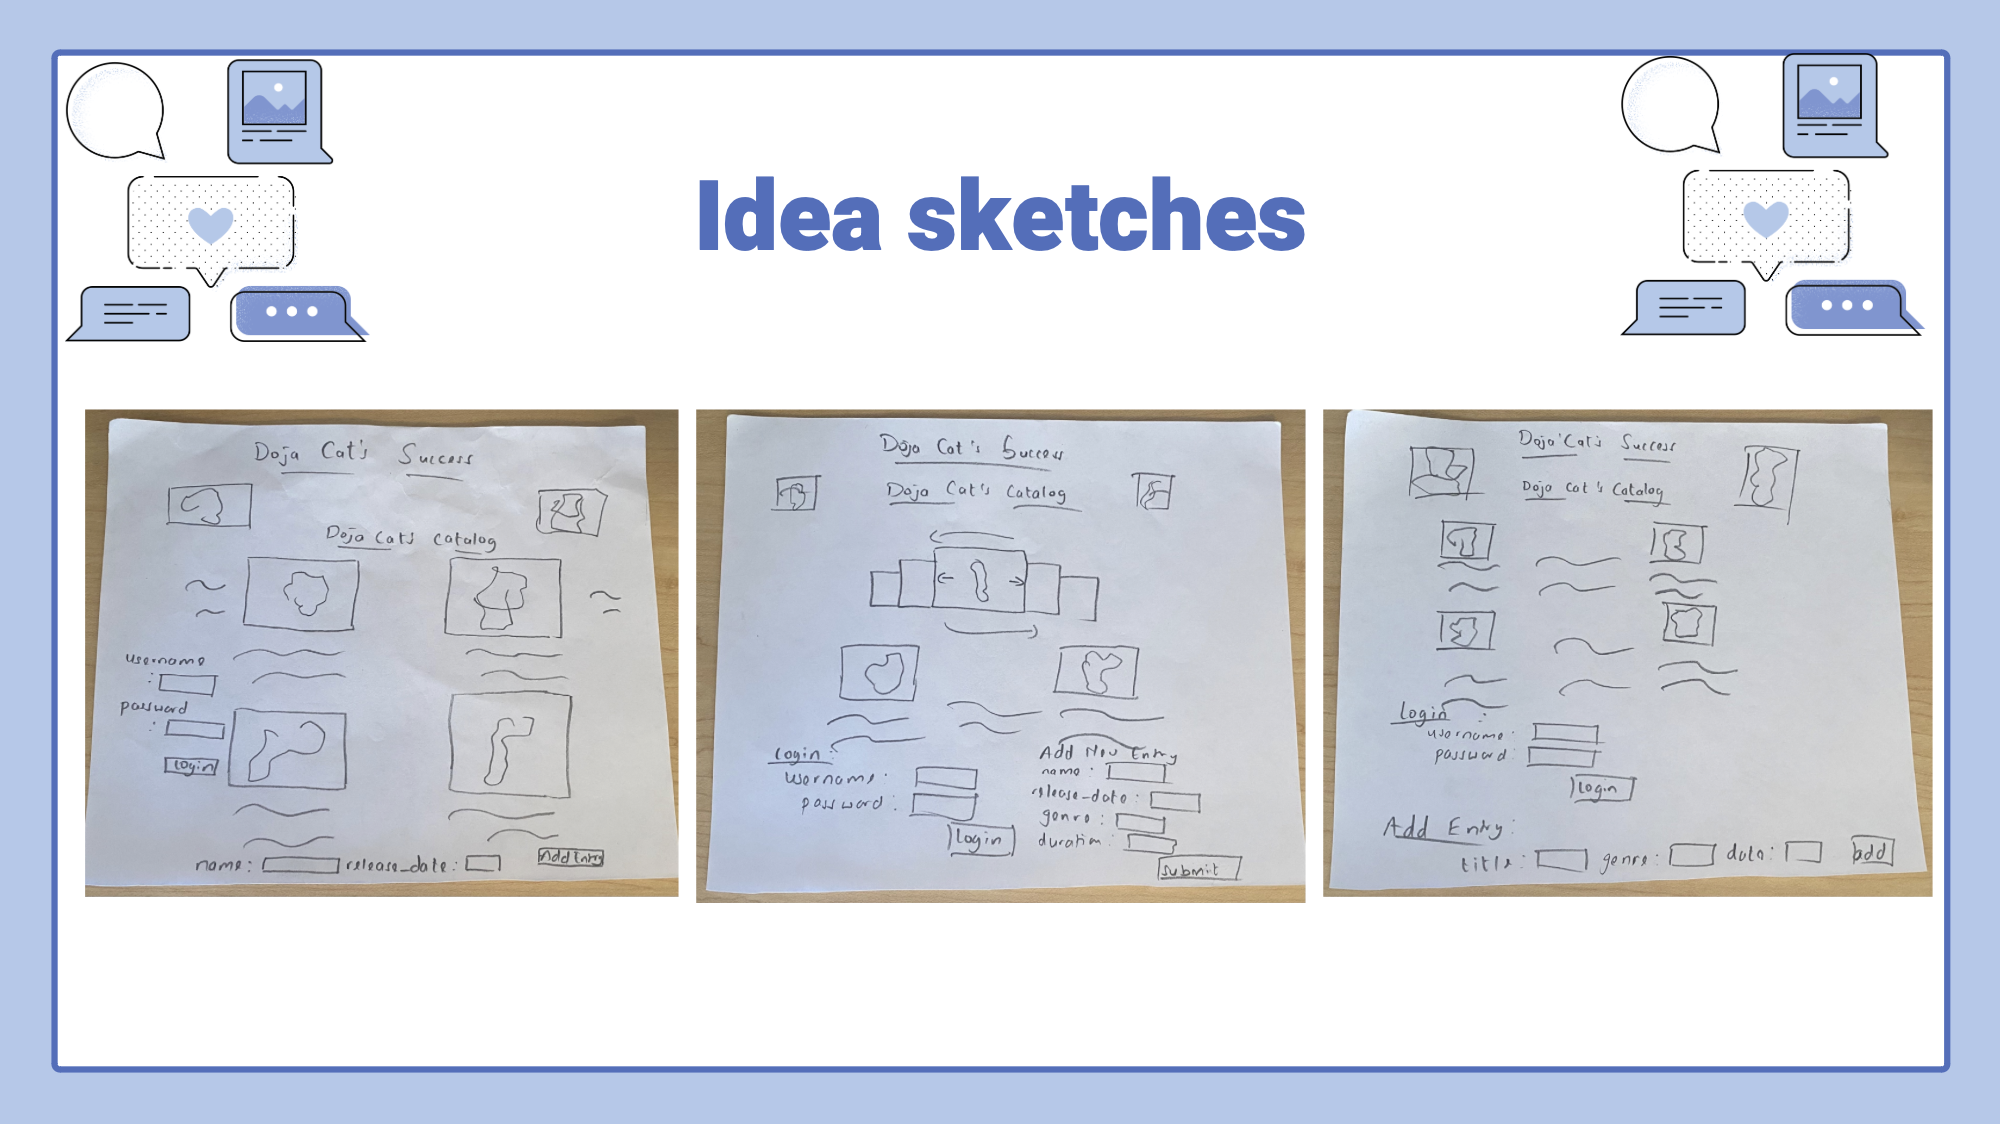 Idea sketches
Doja Cat's Success
Doja Cats Catalog
username
:
password
:
Login
name:
release_date:
Add Entry
Doja Cat's Success
Doja Cat's Catalog
Login:
username:
password:
Login
Add New Entry
name:
release_date:
genre:
duration:
submit
Doja Cat's Success
Doja Cat's Catalog
Login:
username:
password:
Login
Add Entry:
title:
genre:
date:
add